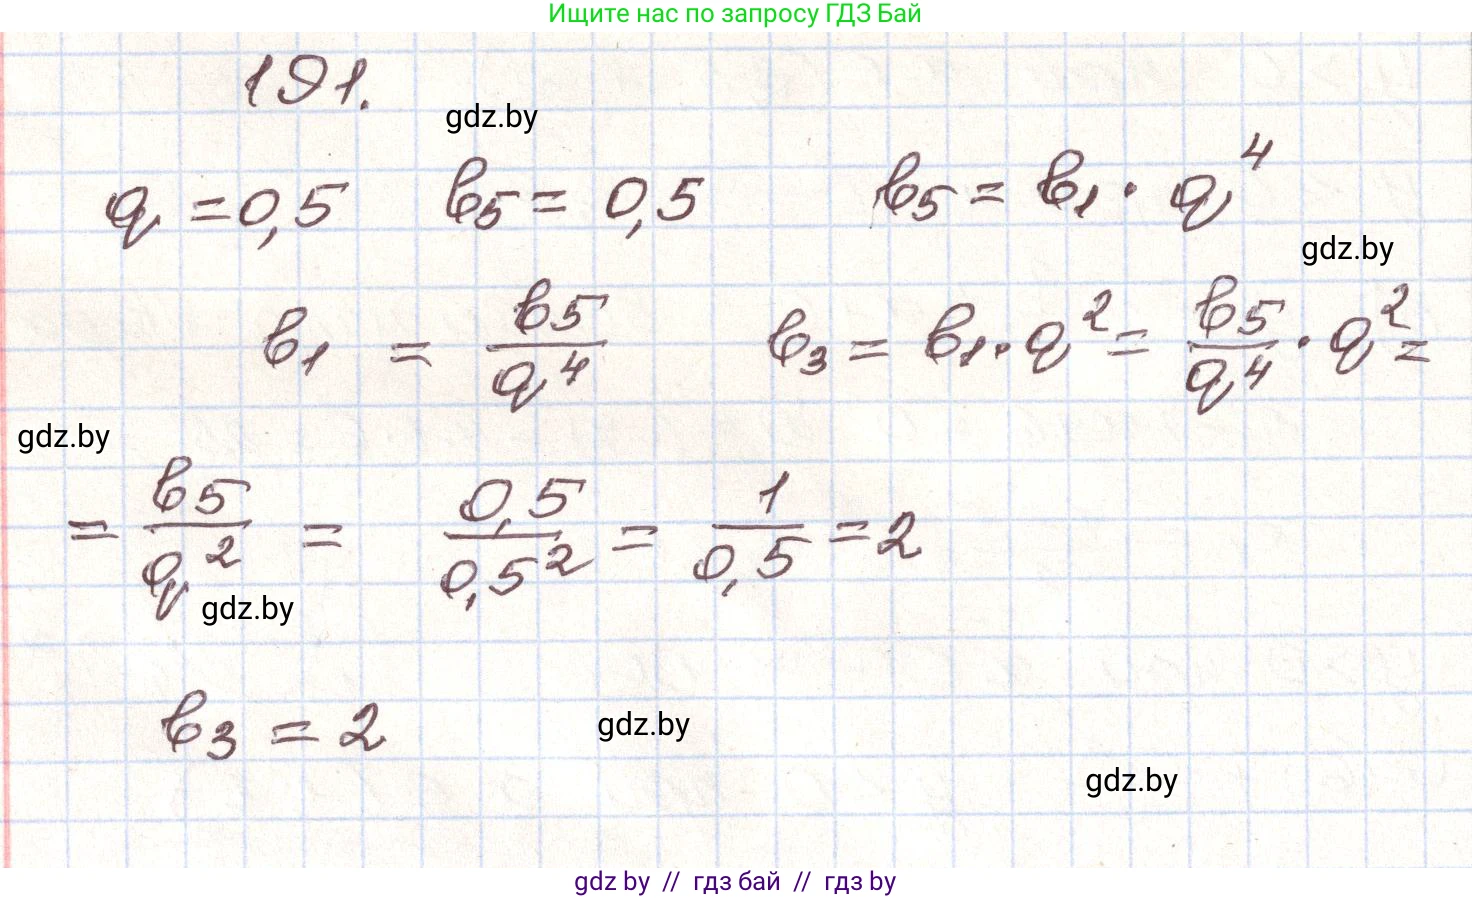 Ищите нас по запросу ГДЗ Бай
191.
gdz.by
q = 0,5 b₅ = 0,5 b₅ = b₁ · q⁴
gdz.by
b₁ = b₅/q⁴ b₃ = b₁ · q² = b₅/q⁴ · q² =
gdz.by
= b₅/q² = 0,5/0,5² = 1/0,5 = 2
gdz.by
b₃ = 2
gdz.by
gdz.by
gdz by // гдз бай // гдз by